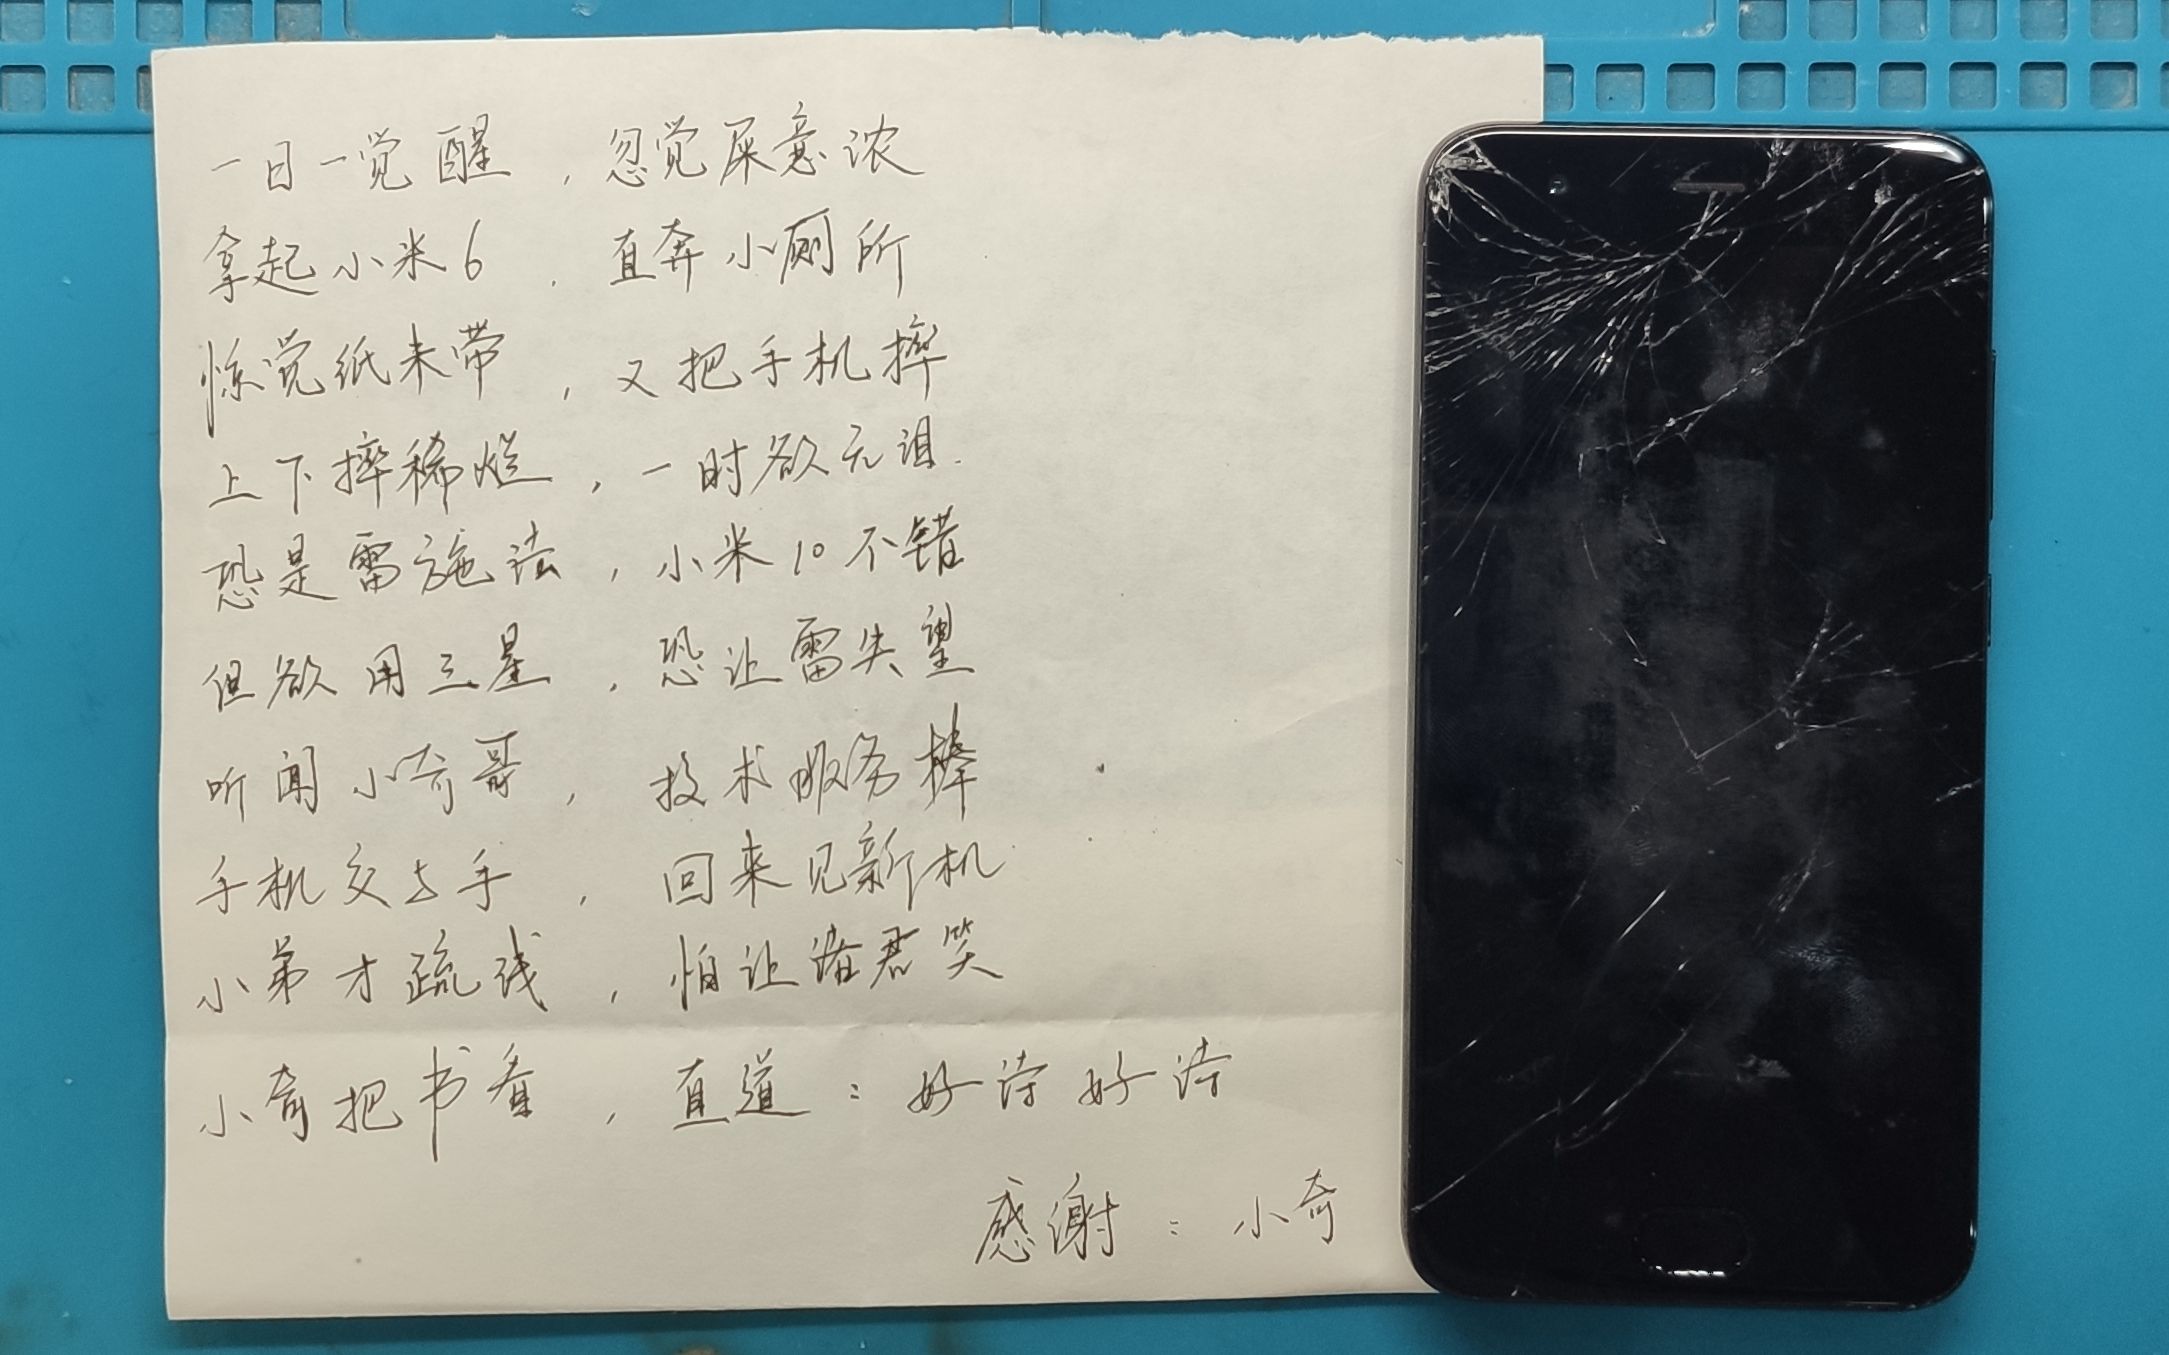 一日一觉醒，忽觉屎意浓
拿起小米6，直奔小厕所
惊觉纸未带，又把手机摔
上下摔稀烂，一时欲无语.
恐是雷施法，小米10不错
但欲用三星，恐让雷失望
听闻小奇哥，技术服务棒
手机交与手，回来见新机
小弟才疏浅，怕让诸君笑
小奇把书看，直道：好诗好诗
感谢：小奇